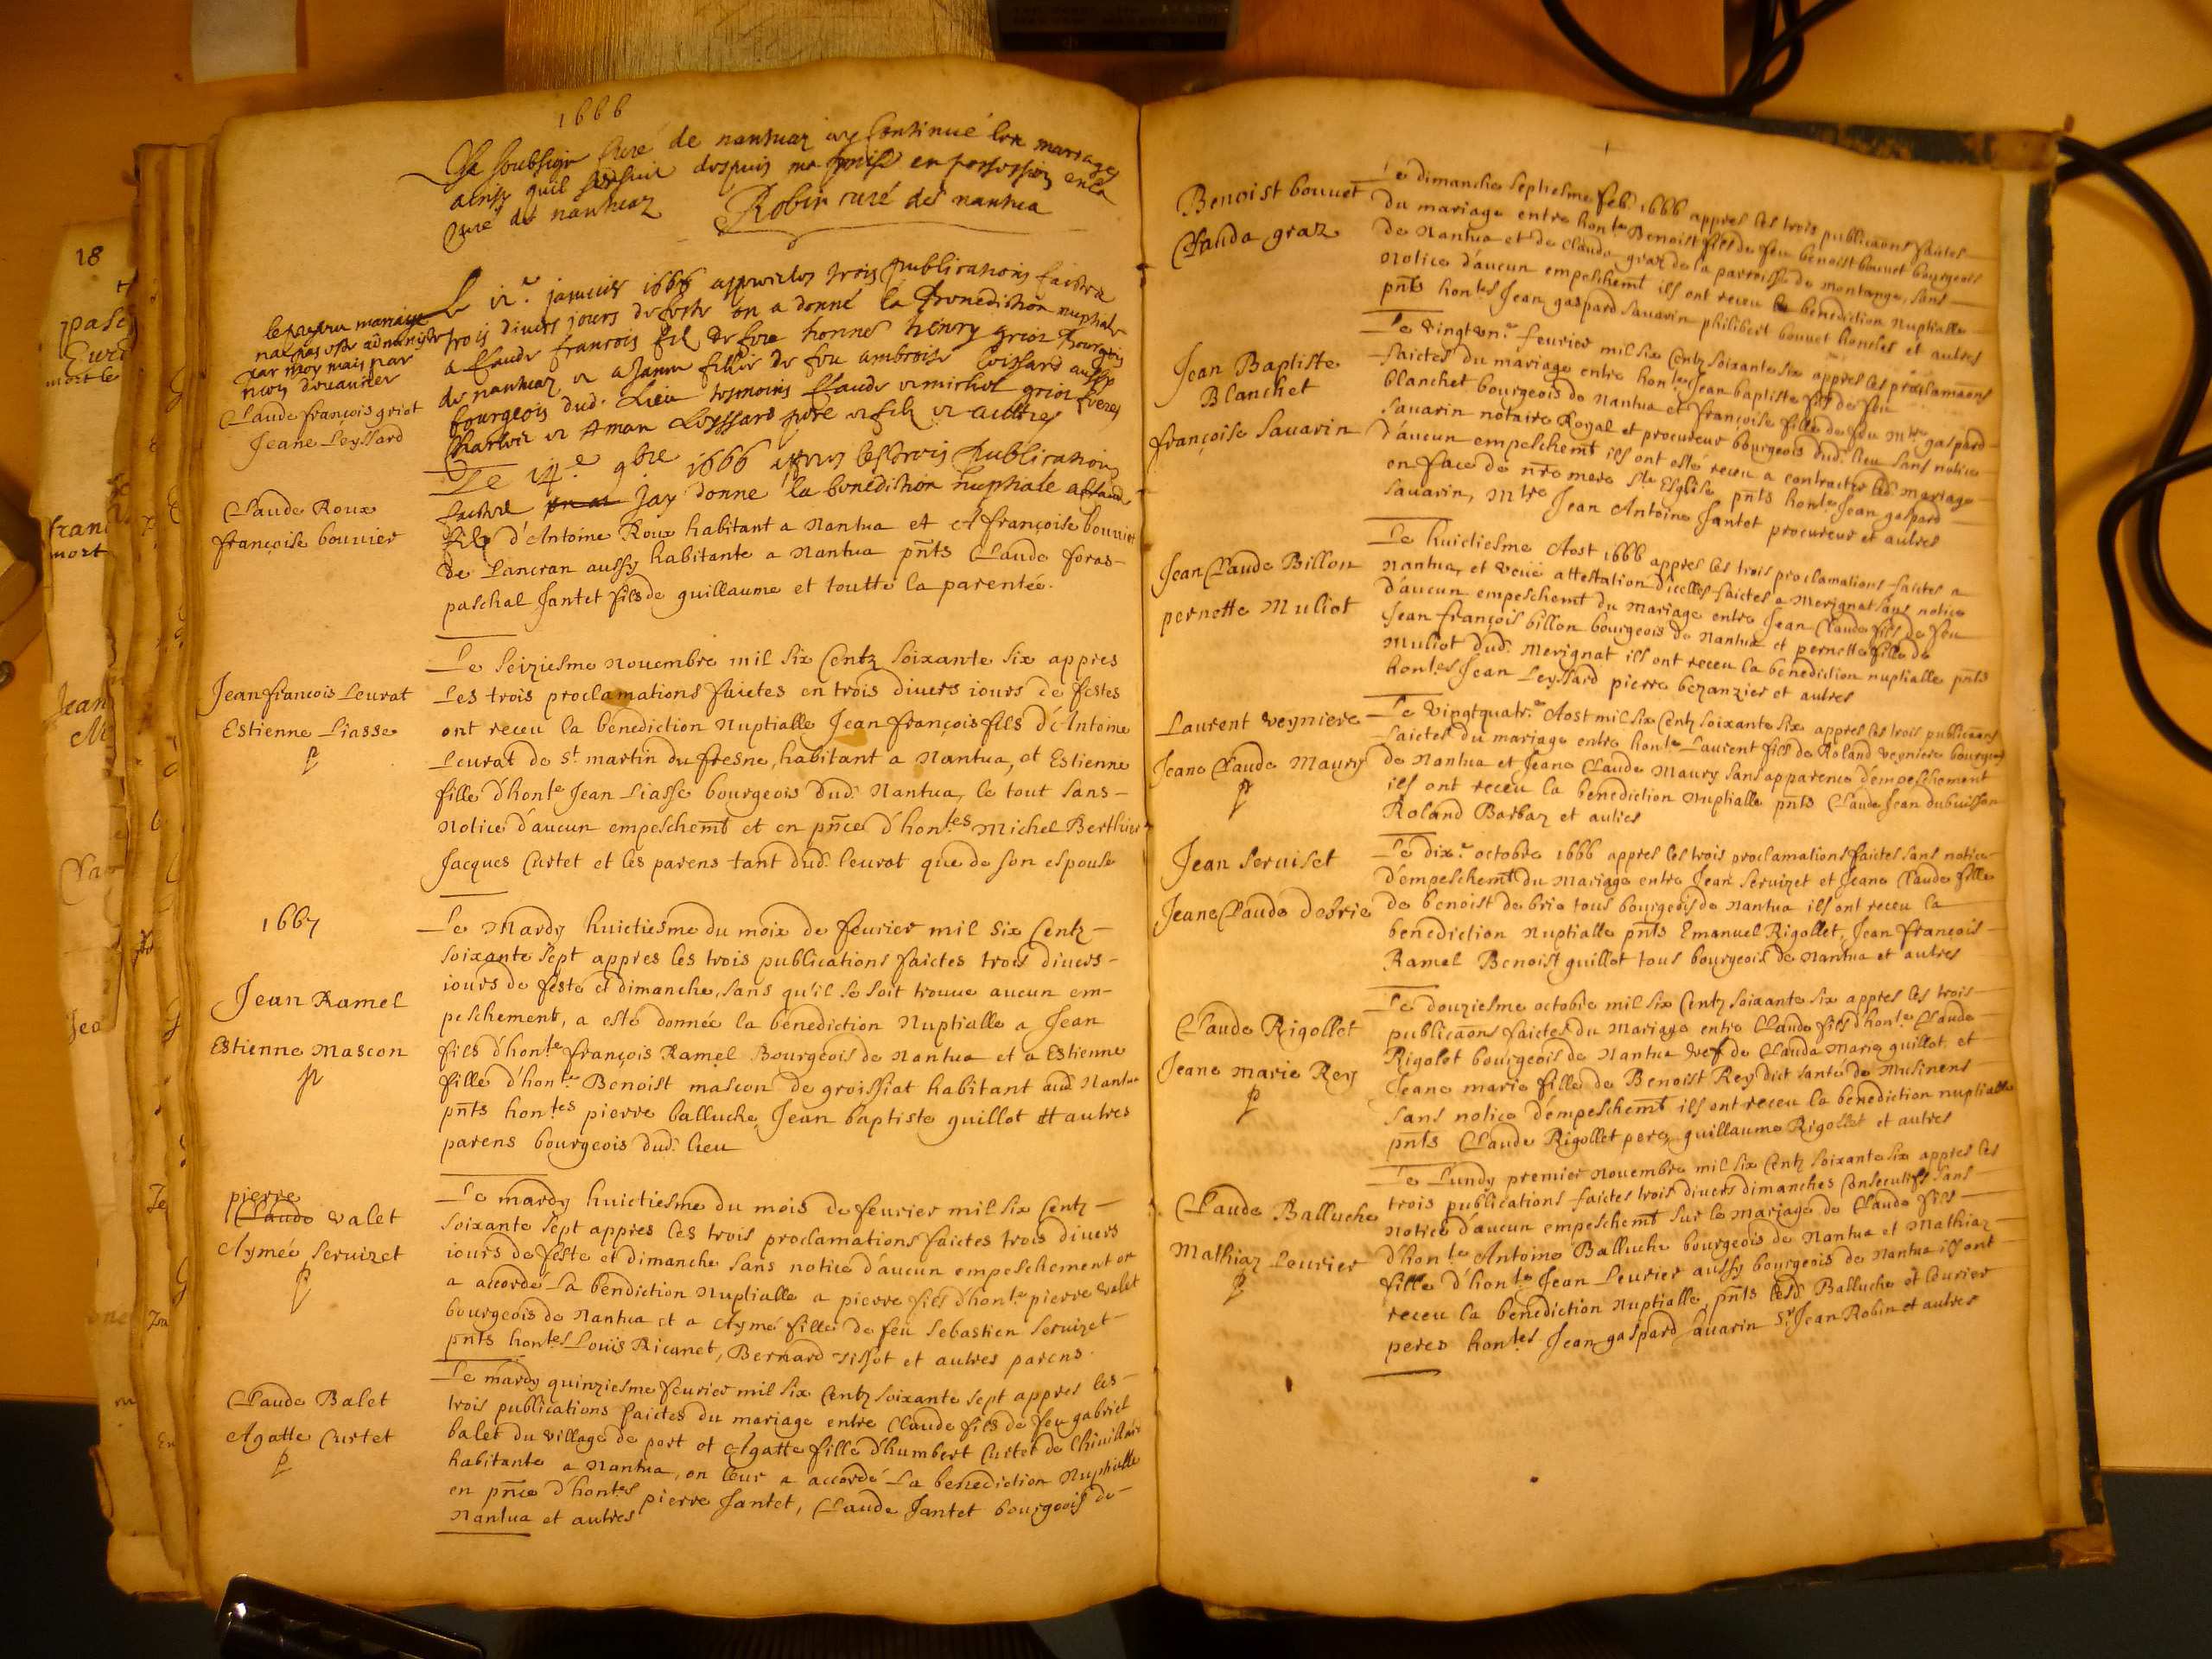 1666
Je soubsigne Curé de nantuaz ay Continué les mariages
ainsy quil sensuit despuis ma prise en possession en la
Curé de nantuaz Robin curé de nantua
le present mariage
na pas este administre
par moy mais par
mon devancier
Claude françois griot
Jeane Leyssard
janvier 1666 appres les trois publications faictes
trois divers jours de feste on a donné la Benediction nuptiale
a Claude francois fil de feu honnes henry griot bourgeois
de nantuaz, et a Janne fillie de feu ambroise Leissard aussy
bourgeois dud. Lieu tesmoins Claude et michel griot freres
Charles et Aman Leyssard pere et filz et aultres
Claude Roux
françoise bouvier
Le 14e 9bre 1666 appres les trois Publications
faictes Jay donne la benediction Nuptiale a Claude
filz d'Antoine Roux habitant a Nantua et a françoise bouvier
de Lancran aussy habitante a Nantua pñts Claude foras-
paschal Jantet fils de guillaume et toutte la parentée.
Jean francois Leurat
Estienne Liasse
Le Seiziesme Novembre mil six Centz Soixante six appres
Les trois proclamations faictes en trois divers iours de festes
ont receu la benediction Nuptialle Jean françois fils d'Antoine
Leurat de St. martin du fresne, habitant a Nantua, et Estienne
fille d'honte Jean Liasse bourgeois dud. Nantua, le tout sans-
Notice d'aucun empeschemt et en pñce d'hontes Michel Berthier
Jacques Curtet et les parens tant dud. leurat que de son espouse
1667
Jean Ramel
Estienne Mascon
Le Mardy huictiesme du moix de fevrier mil Six Centz-
Soixante Sept appres les trois publications faictes trois divers-
iours de feste et dimanche, sans qu'il se soit trouvé aucun em-
peschement, a esté donnée la bénediction Nuptialle a Jean
fils d'honte françois Ramel Bourgeois de Nantua et a Estienne
fille d'honte Benoist mascon de groissiat habitant aud. Nantua
pñts hontes pierre balluche, Jean baptiste guillot et autres
parens bourgeois dud. lieu
pierre
Claude valet
Aymée Servizet
Le mardy huictiesme du mois de février mil six Centz-
Soixante Sept appres les trois proclamations faictes trois divers
iours de feste et dimanche sans notice d'aucun empeschement on
a accordé La bendiction Nuptialle a pierre fils d'honte pierre valet
bourgeois de Nantua et a Aymé fille de feu Sebastien Servizet-
pñts hontes Louis Ricanet, Bernard tissot et autres parens.
Claude Balet
Agatte Curtet
Le mardy quinziesme fevrier mil six Centz soixante sept appres les-
trois publications faictes du mariage entre Claude fils de feu gabriel
balet du village de port et Agatte fille d'humbert Curtet de
habitante a Nantua, on leur a accordé La benediction Nuptialle
en pñce d'hontes pierre Jantet, Claude Jantet bourgeois de-
Nantua et autres
Benoist bouvet
Clauda graz
Le dimanche septiesme feb. 1666 appres les trois publicaons faictes-
du mariage entre honte Benoist fils de feu benoist bouvet bourgeois
de Nantua et de Clauda graz de la parroisse de montange, sans-
notice d'aucun empeschemt ils ont receu la benediction Nuptialle-
pñts hontes Jean gaspard Savarin philibert bouvet et autres
Jean Baptiste
Blanchet
françoise Savarin
Le vingtun.e fevrier mil six Centz soixante six appres les proclamaons
faictes du mariage entre honte Jean baptiste fils de feu
blanchet bourgeois de Nantua et françoise fille de feu mre gaspard-
Savarin notaire Royal et procureur bourgeois dud. lieu sans notice-
d'aucun empeschemt ils ont esté receu a contracter led. mariage-
en face de nre mere Ste Esglise pñts honte Jean gaspard-
Savarin, mtre Jean Antoine Jantet procureur et autres
Jean Claude Billon
pernette Muliot
Le huictiesme Aost 1666 appres les trois proclamations faictes a
Nantua, et veüe attestation d'icelles faictes a Merignat sans notice
d'aucun empeschemt du mariage entre Jean Claude fils de feu
Jean françois billon bourgeois de Nantua et pernette fille de
Muliot dud. Merignat ils ont receu la benediction nuptialle pñts
hontes Jean Leyssard pierre bezanzier et autres
Laurent veyniere
Jeane Claude Maury
Le vingtquatr.e Aost mil six Centz soixante six appres les trois publicaons
faictes du mariage entre honte Laurent fils de Roland veyniere bourgeois
de Nantua et Jeane Claude Maury sans apparence d'empeschement
ils ont receu la benediction Nuptialle pñts Claude Jean dubuisson
Roland Barbaz et autres
Jean Serviset
Jeane Claude debrie
Le dix.e octobre 1666 appres les trois proclamations faictes sans notice-
d'empeschemt du mariage entre Jean Servizet et Jeane Claude fille
de benoist de brie tous bourgeois de Nantua ils ont receu la
benediction Nuptialle pñts Emanuel Rigollet, Jean françois-
Ramel Benoist guillot tous bourgeois de Nantua et autres
Claude Rigollet
Jeane Marie Rey
Le douziesme octobre mil six Centz soixante six appres les trois-
publicaons faictes du Mariage entre Claude fils d'honte Claude-
Rigolet bourgeois de Nantua vef de Clauda Marie guillot et-
Jeane marie fille de Benoist Rey dict sante de Musinens-
Sans notice d'empeschemt ils ont receu la benediction nuptialle
pñts Claude Rigollet pere, guillaume Rigollet et autres
Claude Balluche
Mathiaz Levrier
Le Lundy premier Novembre mil six Centz soixante six appres les
trois publications faictes trois divers dimanches Consecutifs sans-
notice d'aucun empeschemt sur le mariage de Claude fils-
d'honte Antoine Balluche bourgeois de Nantua et Mathiaz-
fille d'honte Jean Levrier aussy bourgeois de Nantua ils ont-
receu la benediction Nuptialle, pñts lesd. Balluche et levrier
peres hontes Jean gaspard Savarin Sr Jean Robin et autres
18